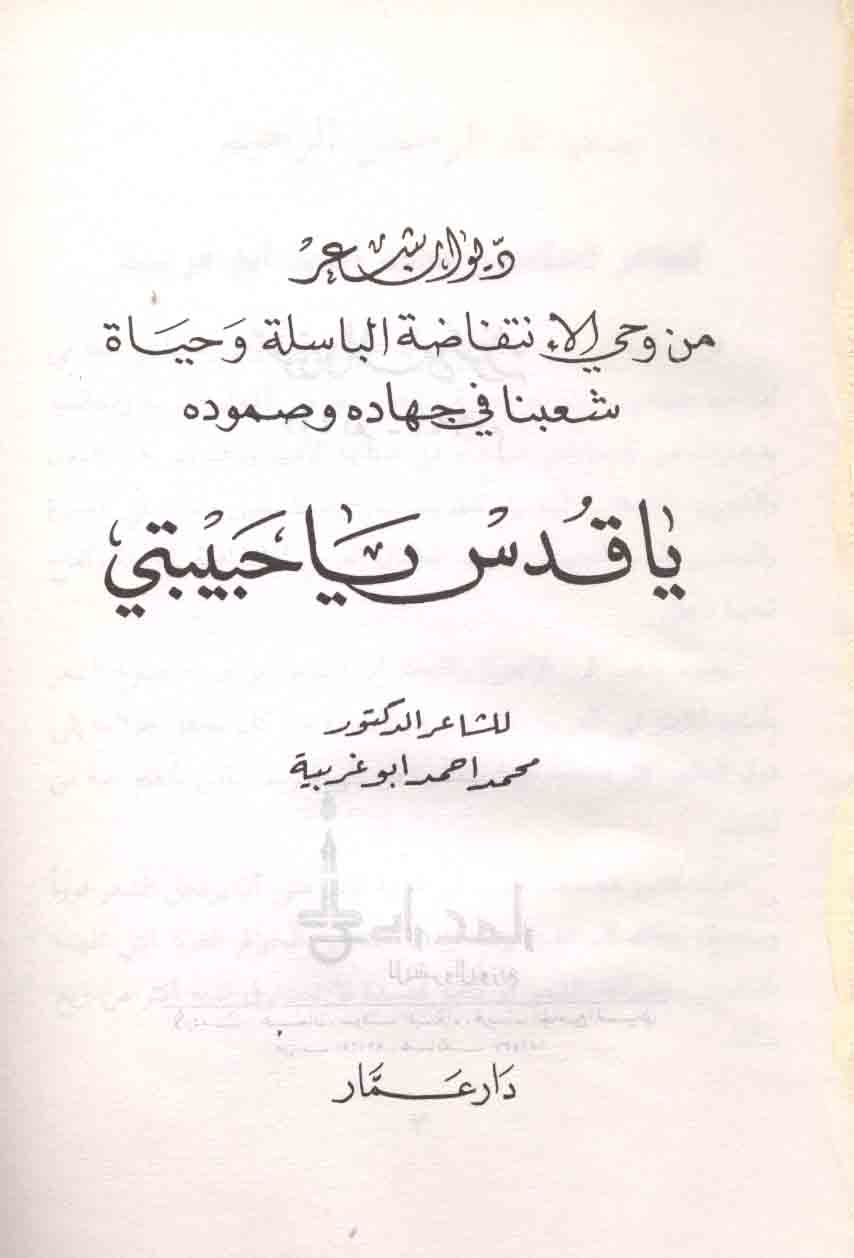 ديوان شاعر
من وحي الإنتفاضة الباسلة وَحيَاة
شعبنا في جهاده وصموده
يا قُدسْ يَا حَبيْبَتي
للشاعر الدكتور
محمد احمد ابو غربية
دار عمار
للنشر والتوزيع
دَار عَـمَّار